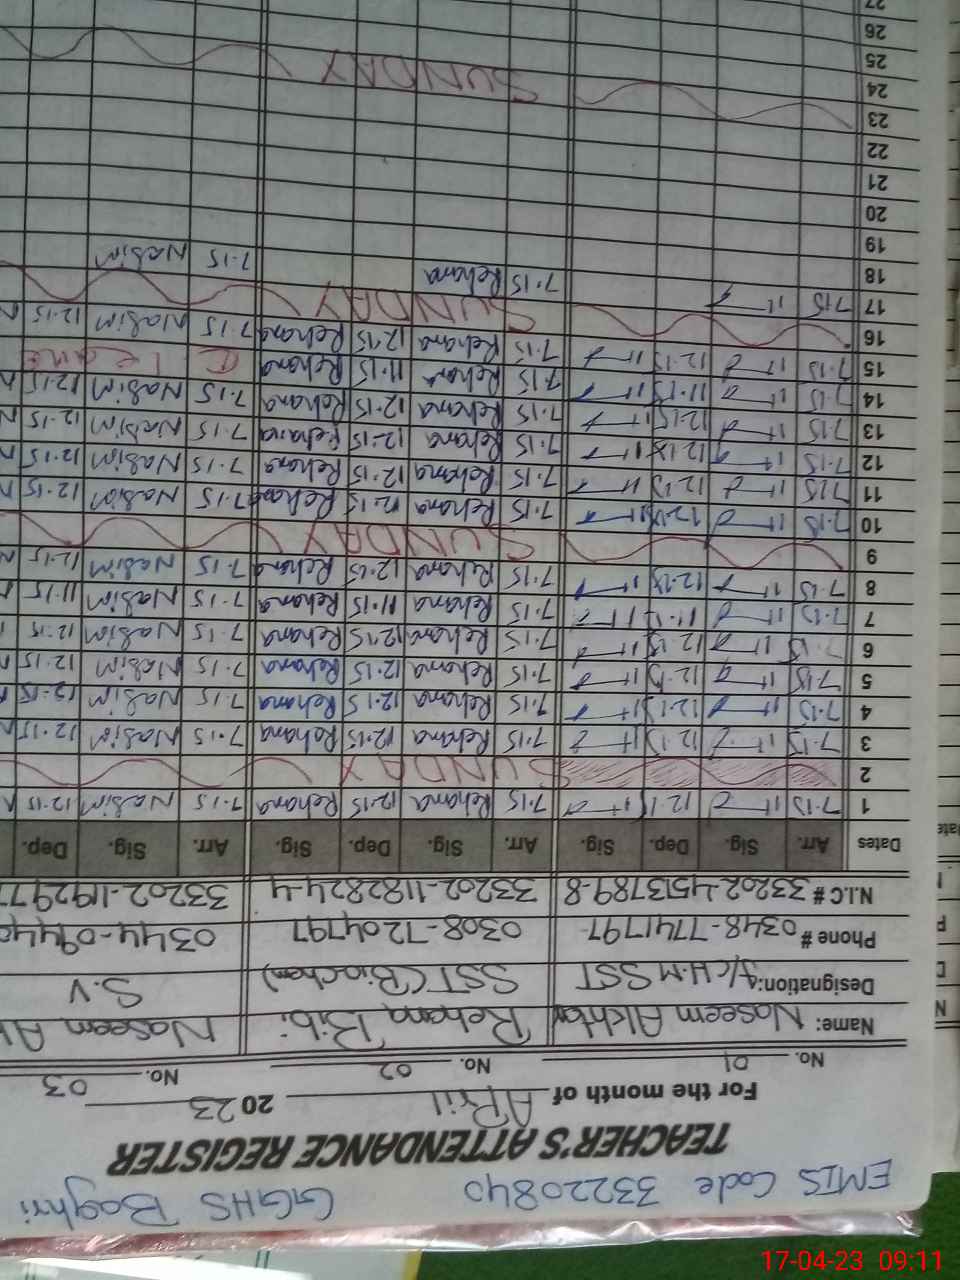 EMIS Code 33220840 GGHS Baghri
TEACHER'S ATTENDANCE REGISTER
For the month of April 2023
No. 01 No. 02 No. 03
Name: Naseem Akhtar Rehana Bibi Naseem Ak
Designation: I/C H.M SST SST (Bio chem) S.V
Phone # 0348-7741797 0308-7204797 0344-0944
N.I.C # 33202-4513789-8 33202-1182824-4 33202-119297
Dates Arr. Sig. Dep. Sig. Arr. Sig. Dep. Sig. Arr. Sig. Dep.
1 7.15 12.15 7.15 Rehana 12.15 Rehana 7.15 Nasim 12.15
2 SUNDAY
3 7.15 12.15 7.15 Rehana 12.15 Rehana 7.15 Nasim 12.15
4 7.15 12.15 7.15 Rehana 12.15 Rehana 7.15 Nasim 12.15
5 7.15 12.15 7.15 Rehana 12.15 Rehana 7.15 Nasim 12.15
6 7.15 12.15 7.15 Rehana 12.15 Rehana 7.15 Nasim 12.15
7 7.15 11.15 7.15 Rehana 11.15 Rehana 7.15 Nasim 11.15
8 7.15 12.15 7.15 Rehana 12.15 Rehana 7.15 Nasim 12.15
9 SUNDAY
10 7.15 12.15 7.15 Rehana 12.15 Rehana 7.15 Nasim 12.15
11 7.15 12.15 7.15 Rehana 12.15 Rehana 7.15 Nasim 12.15
12 7.15 12.15 7.15 Rehana 12.15 Rehana 7.15 Nasim 12.15
13 7.15 12.15 7.15 Rehana 12.15 Rehana 7.15 Nasim 12.15
14 7.15 11.15 7.15 Rehana 11.15 Rehana C. Leave
15 7.15 12.15 7.15 Rehana 12.15 Rehana 7.15 Nasim 12.15
16 SUNDAY
17 7.15 7.15 Rehana 7.15 Nasim
18
19
20
21
22
23 SUNDAY
24
25
26
27
17-04-23 09:11